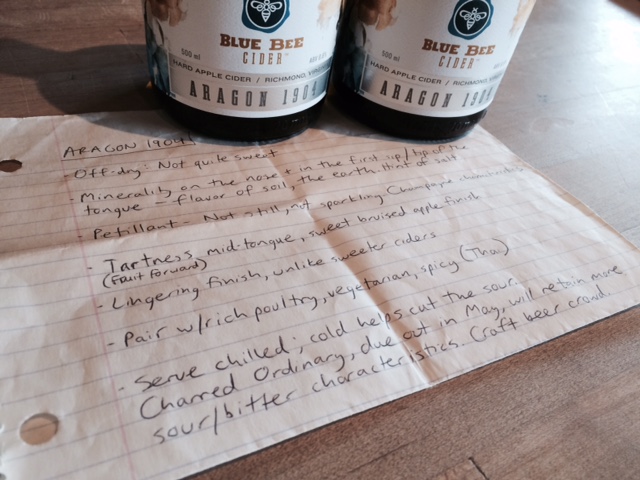 BLUE BEE
CIDER
500 ml
HARD APPLE CIDER / RICHMOND, VIRGINIA
ARAGON 1904
BLUE BEE
CIDER
500 ml
HARD APPLE CIDER / RICHMOND, VIR
ARAGON 1904
ARAGON 1904
- Off-dry: Not quite sweet
Minerality on the nose + in the first sip/tip of the
tongue - flavor of soil, the earth. Hint of salt.
Petillant - Not still, not sparkling. Champagne
- Tartness mid-tongue, sweet bruised apple finish
(Fruit Forward)
- Lingering finish, unlike sweeter ciders
- Pair w/rich poultry, vegetarian, spicy (Thai)
- Serve chilled; cold helps cut the sour.
Charred Ordinary, due out in May, will retain more
sour/bitter characteristics. Craft beer crowd